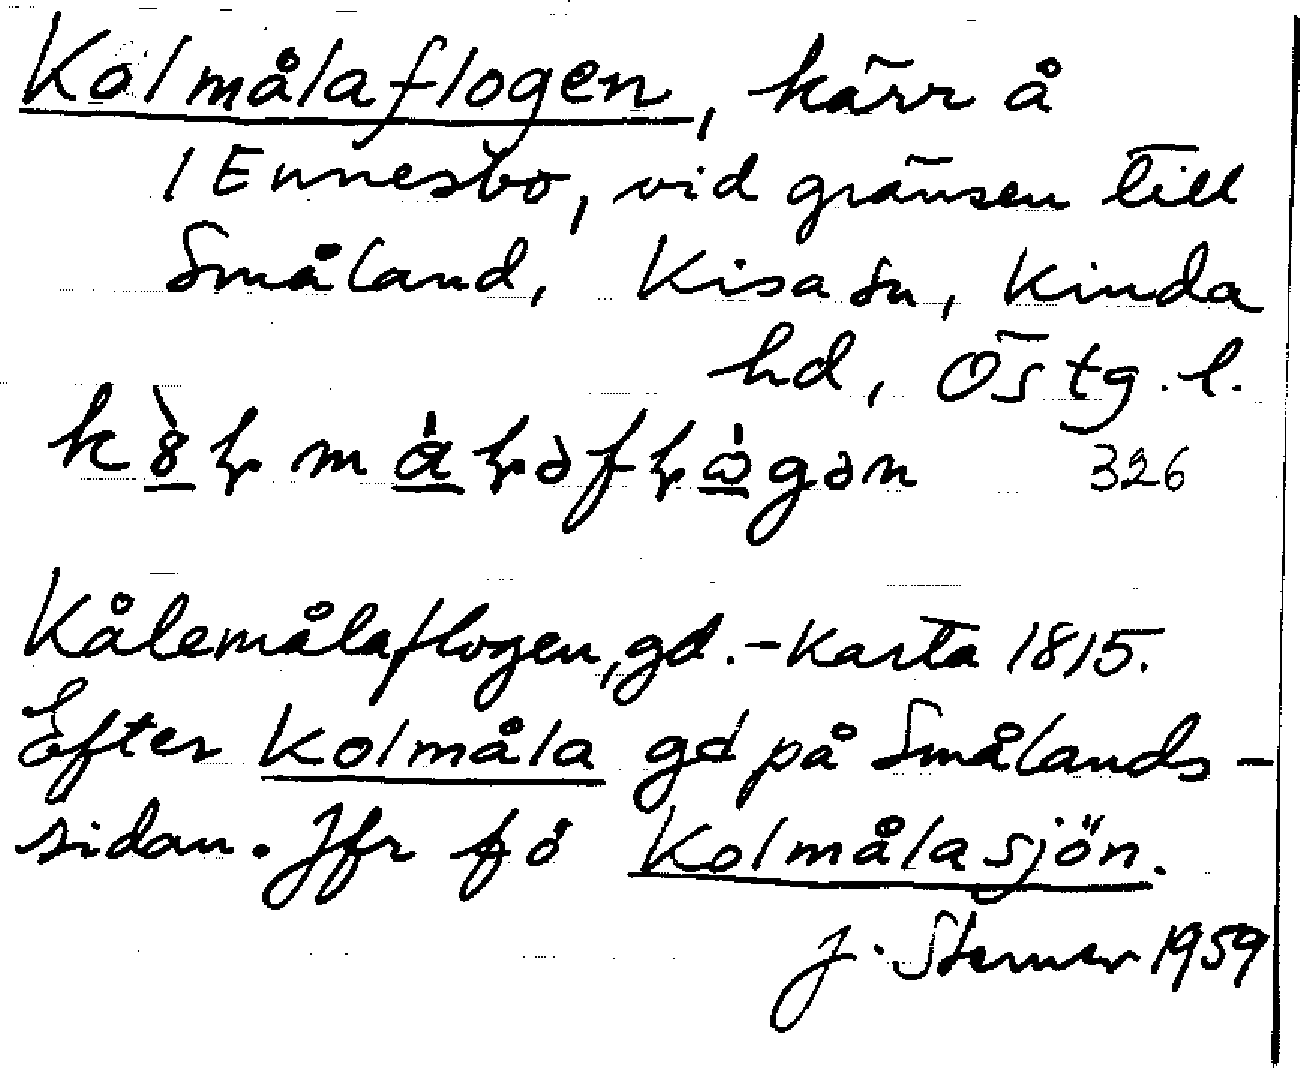 Kolmålaflogen, kärr å
1 Ennesbo, vid gränsen till
Småland, Kisa sn, Kinda
hd, Östg. l.
326
Kålemålaflogen, gd. - Karta 1815.
Efter Kolmåla gd på Smålands-
sidan. Jfr sjö Kolmålasjön.
J. Sterner 1959